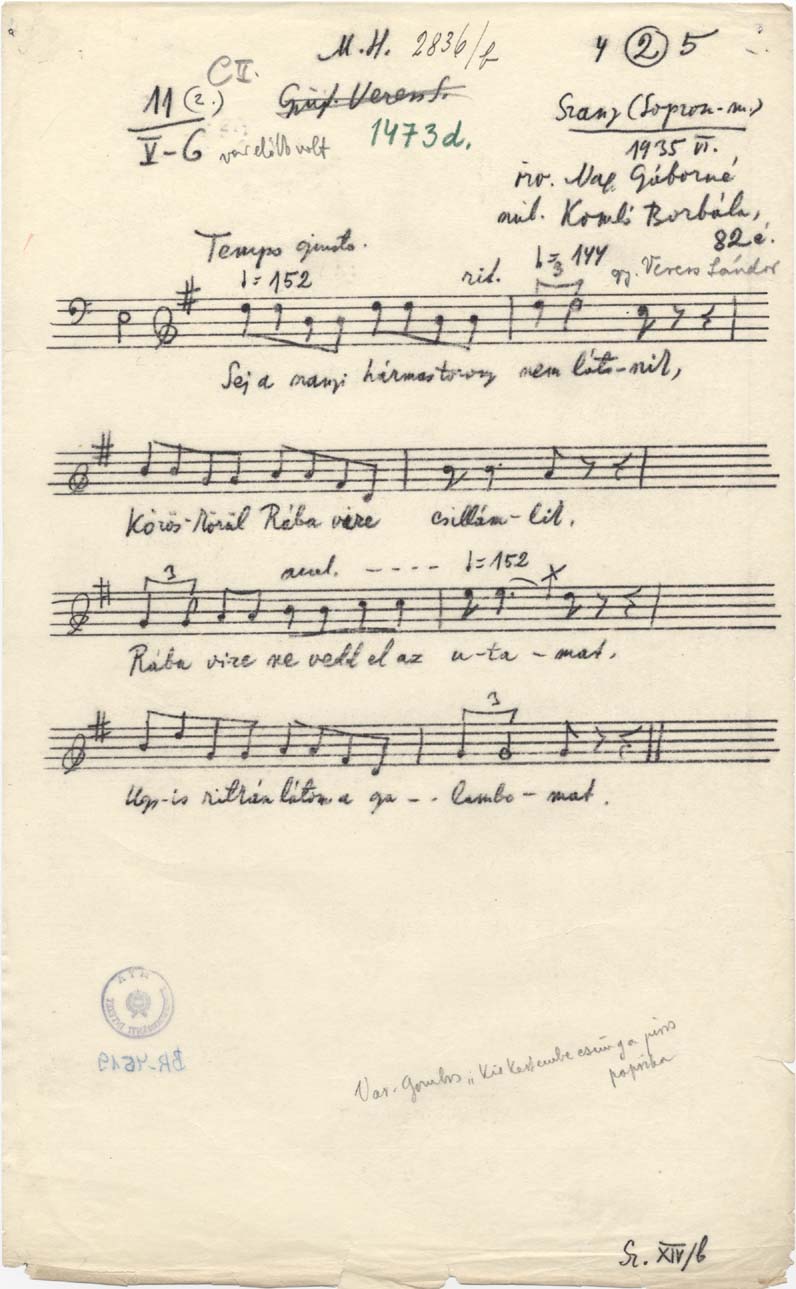 M.H. 2836/b
4 2 5
C II.
11 (2.)
V-6
Gyűj. Veress S.
1473d.
Szany (Sopron-m.)
1935 VI.
özv. Nagy Gáborné
szül. Komló Borbála,
82 é.
gy. Veress Sándor
Tempo giusto.
= 152
rit.
= 144
3
Sej a szanyi hármastorony nem látszik,
Körös-körül Rába vize csillám-lik.
3
accel. ----
= 152
Rába vize ne vedd el az u-ta-mat.
3
Úgy-is ritkán látom a ga-- lambo-mat.
BR-4619
Var. Gombos „Kis kertembe csüng a piros
paprika
Sz. XIV/b